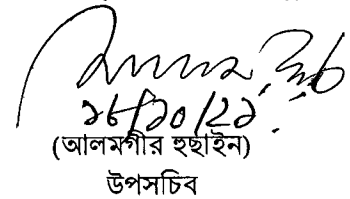 ১৮/১০/২১
(আলমগীর হুছাইন)
উপসচিব